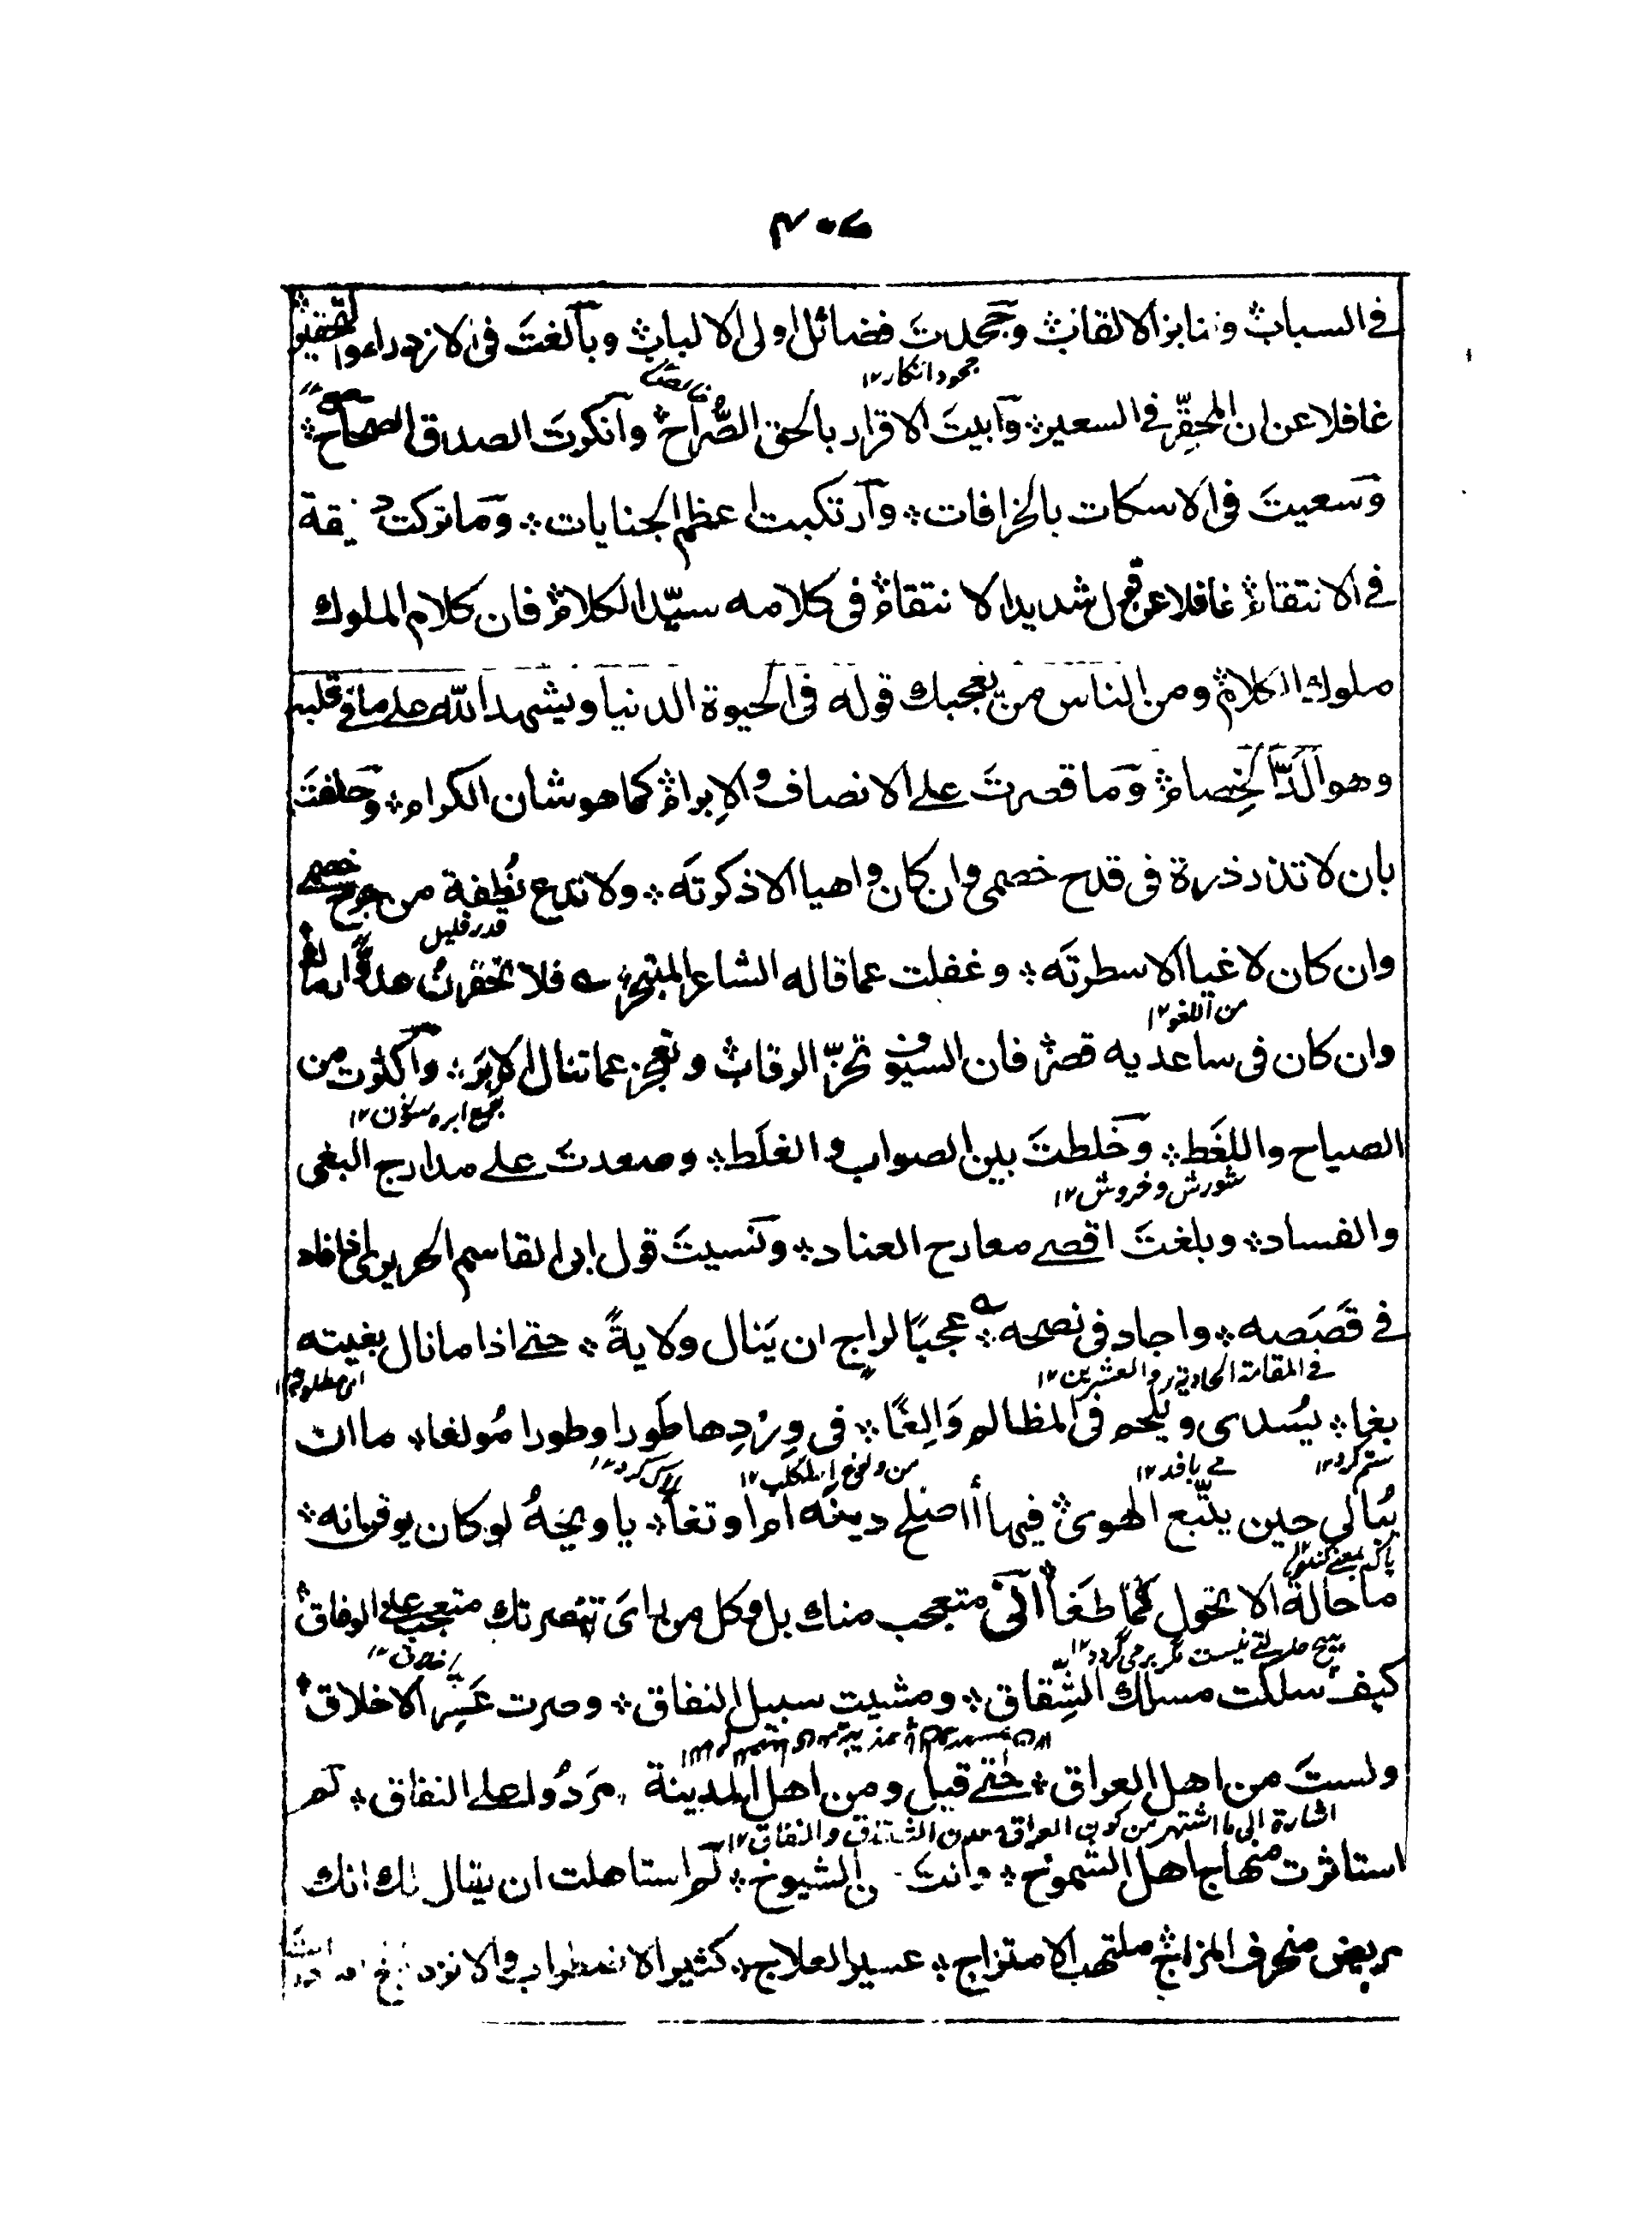 ٤٠٧
في السباب وتنابز الالقاب وجحدت فضائل اولى الالباب وبالغت في الازدراء والتحقير
جحود انكار ١٢
غافلا عن ان المحقِّر في السعير وابيت الاقرار بالحق الصُّراح وانكرت الصدق الصحاح
وسعيت في الاسكات بالخرافات وارتكبت اعظم الجنايات وما تركت دقيقة
في الانتقام غافلا عن قول شديد الانتقام في كلامه سيّد الكلام فان كلام الملوك
ملوك الكلام ومن الناس من يعجبك قوله في الحيوة الدنيا ويشهد الله على ما في قلبه
وهو الدّ الخِصام وما قصرت على الانصاف والاِبرام كما هو شان الكرام وحلفتَ
بان لا تذر ذرة في قدح خصمي وان كان واهيا الا ذكرته ولا تدع نُطفة من جرح خصمي
قدر قليل
وان كان لاغيا الا سطرته وغفلت عما قاله الشاعر المتبحر فلا تحقرنّ عدوًّا رماك
من اللغو ١٢
وان كان في ساعديه قصر فان السيوف تحزّ الرقاب وتعجز عما تنال الاِبَر واكثرت من
جمع ابره سوزن ١٢
الصياح واللغَط وخلطتَ بين الصواب والغلَط وصعدتَ على مدارج البغي
شورش وخروش ١٢
والفساد وبلغتَ اقصى معارج العناد ونسيتَ قول ابي القاسم الحريري اذا افاد
في قَصَصه واجاد في نصحه عجبًا لراجٍ ان يَنال ولايةً حتى اذا ما نال بغيته
في المقامة الحادية والعشرين ١٢
بغا يُسدى ويُلحم في المظالم وَالِغًا في وِرْدِها طَورا وطورا مُولغا ما ان
ستم كرد ١٢ مے بافد ١٢ من ولوغ الكلب ١٢
يُبالي حين يتّبع الهوى فيها أاصلح دينَه ام اوتغا يا ويحَهُ لو كان يوقن انه
ما حالة الا تحول لما طغا انى متعجب منك بل وكل من راى تبصرتك متعجب على الوفاق
كيف سلكت مسلك الشِّقاق ومشيت سبيل النفاق وصرت عَسِر الاخلاق
ولست من اهل العراق حتى قيل ومن اهل المدينة مرَدُوا على النفاق لم
اشارة الى ما اشتهر من كون العراق معدن الشقاق والنفاق ١٢
استاثرت منهاج اهل الشموخ وانتَ من الشيوخ لم استاهلت ان يقال لك انك
مريض منحرف المزاج ملتهب الامتزاج عسير العلاج كثير الاضطراب والانزعاج